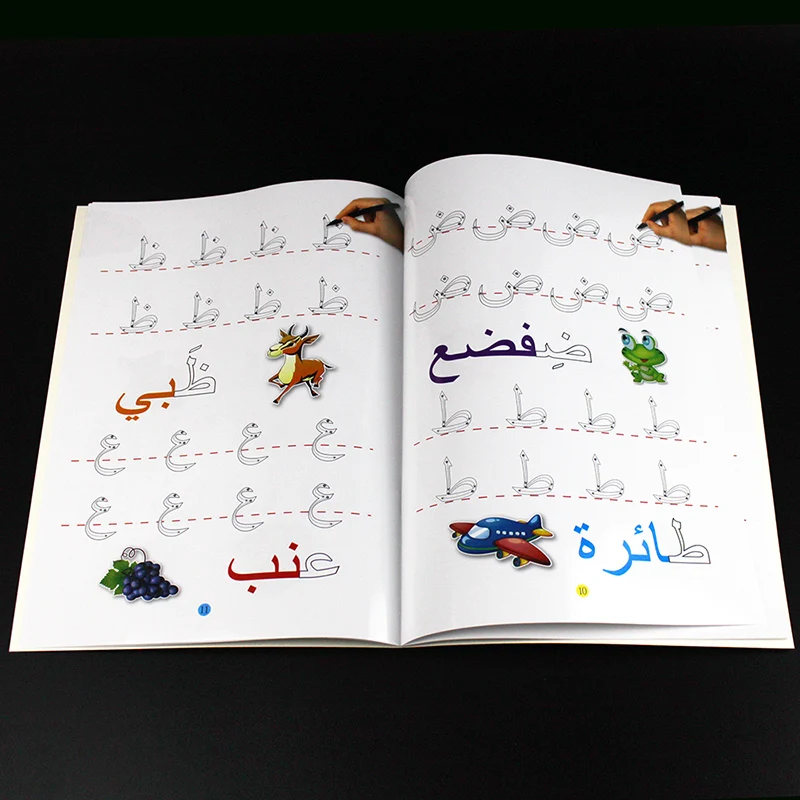 ض ض ض ض
ض ض ض ض
ضِفضع
ط ط ط ط
ط ط ط ط
طائرة
10
ظ ظ ظ ظ
ظ ظ ظ ظ
ظَبي
ع ع ع ع
ع ع ع ع
عنب
11